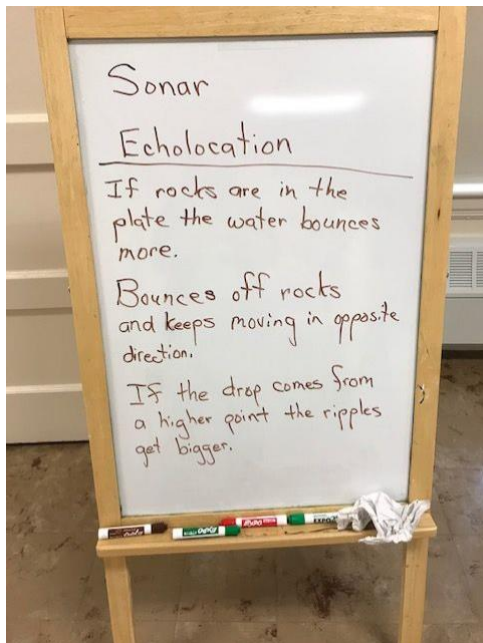 Sonar
Echolocation
If rocks are in the
plate the water bounces
more.
Bounces off rocks
and keeps moving in opposite
direction.
If the drop comes from
a higher point the ripples
get bigger.
EXPO
EXPO